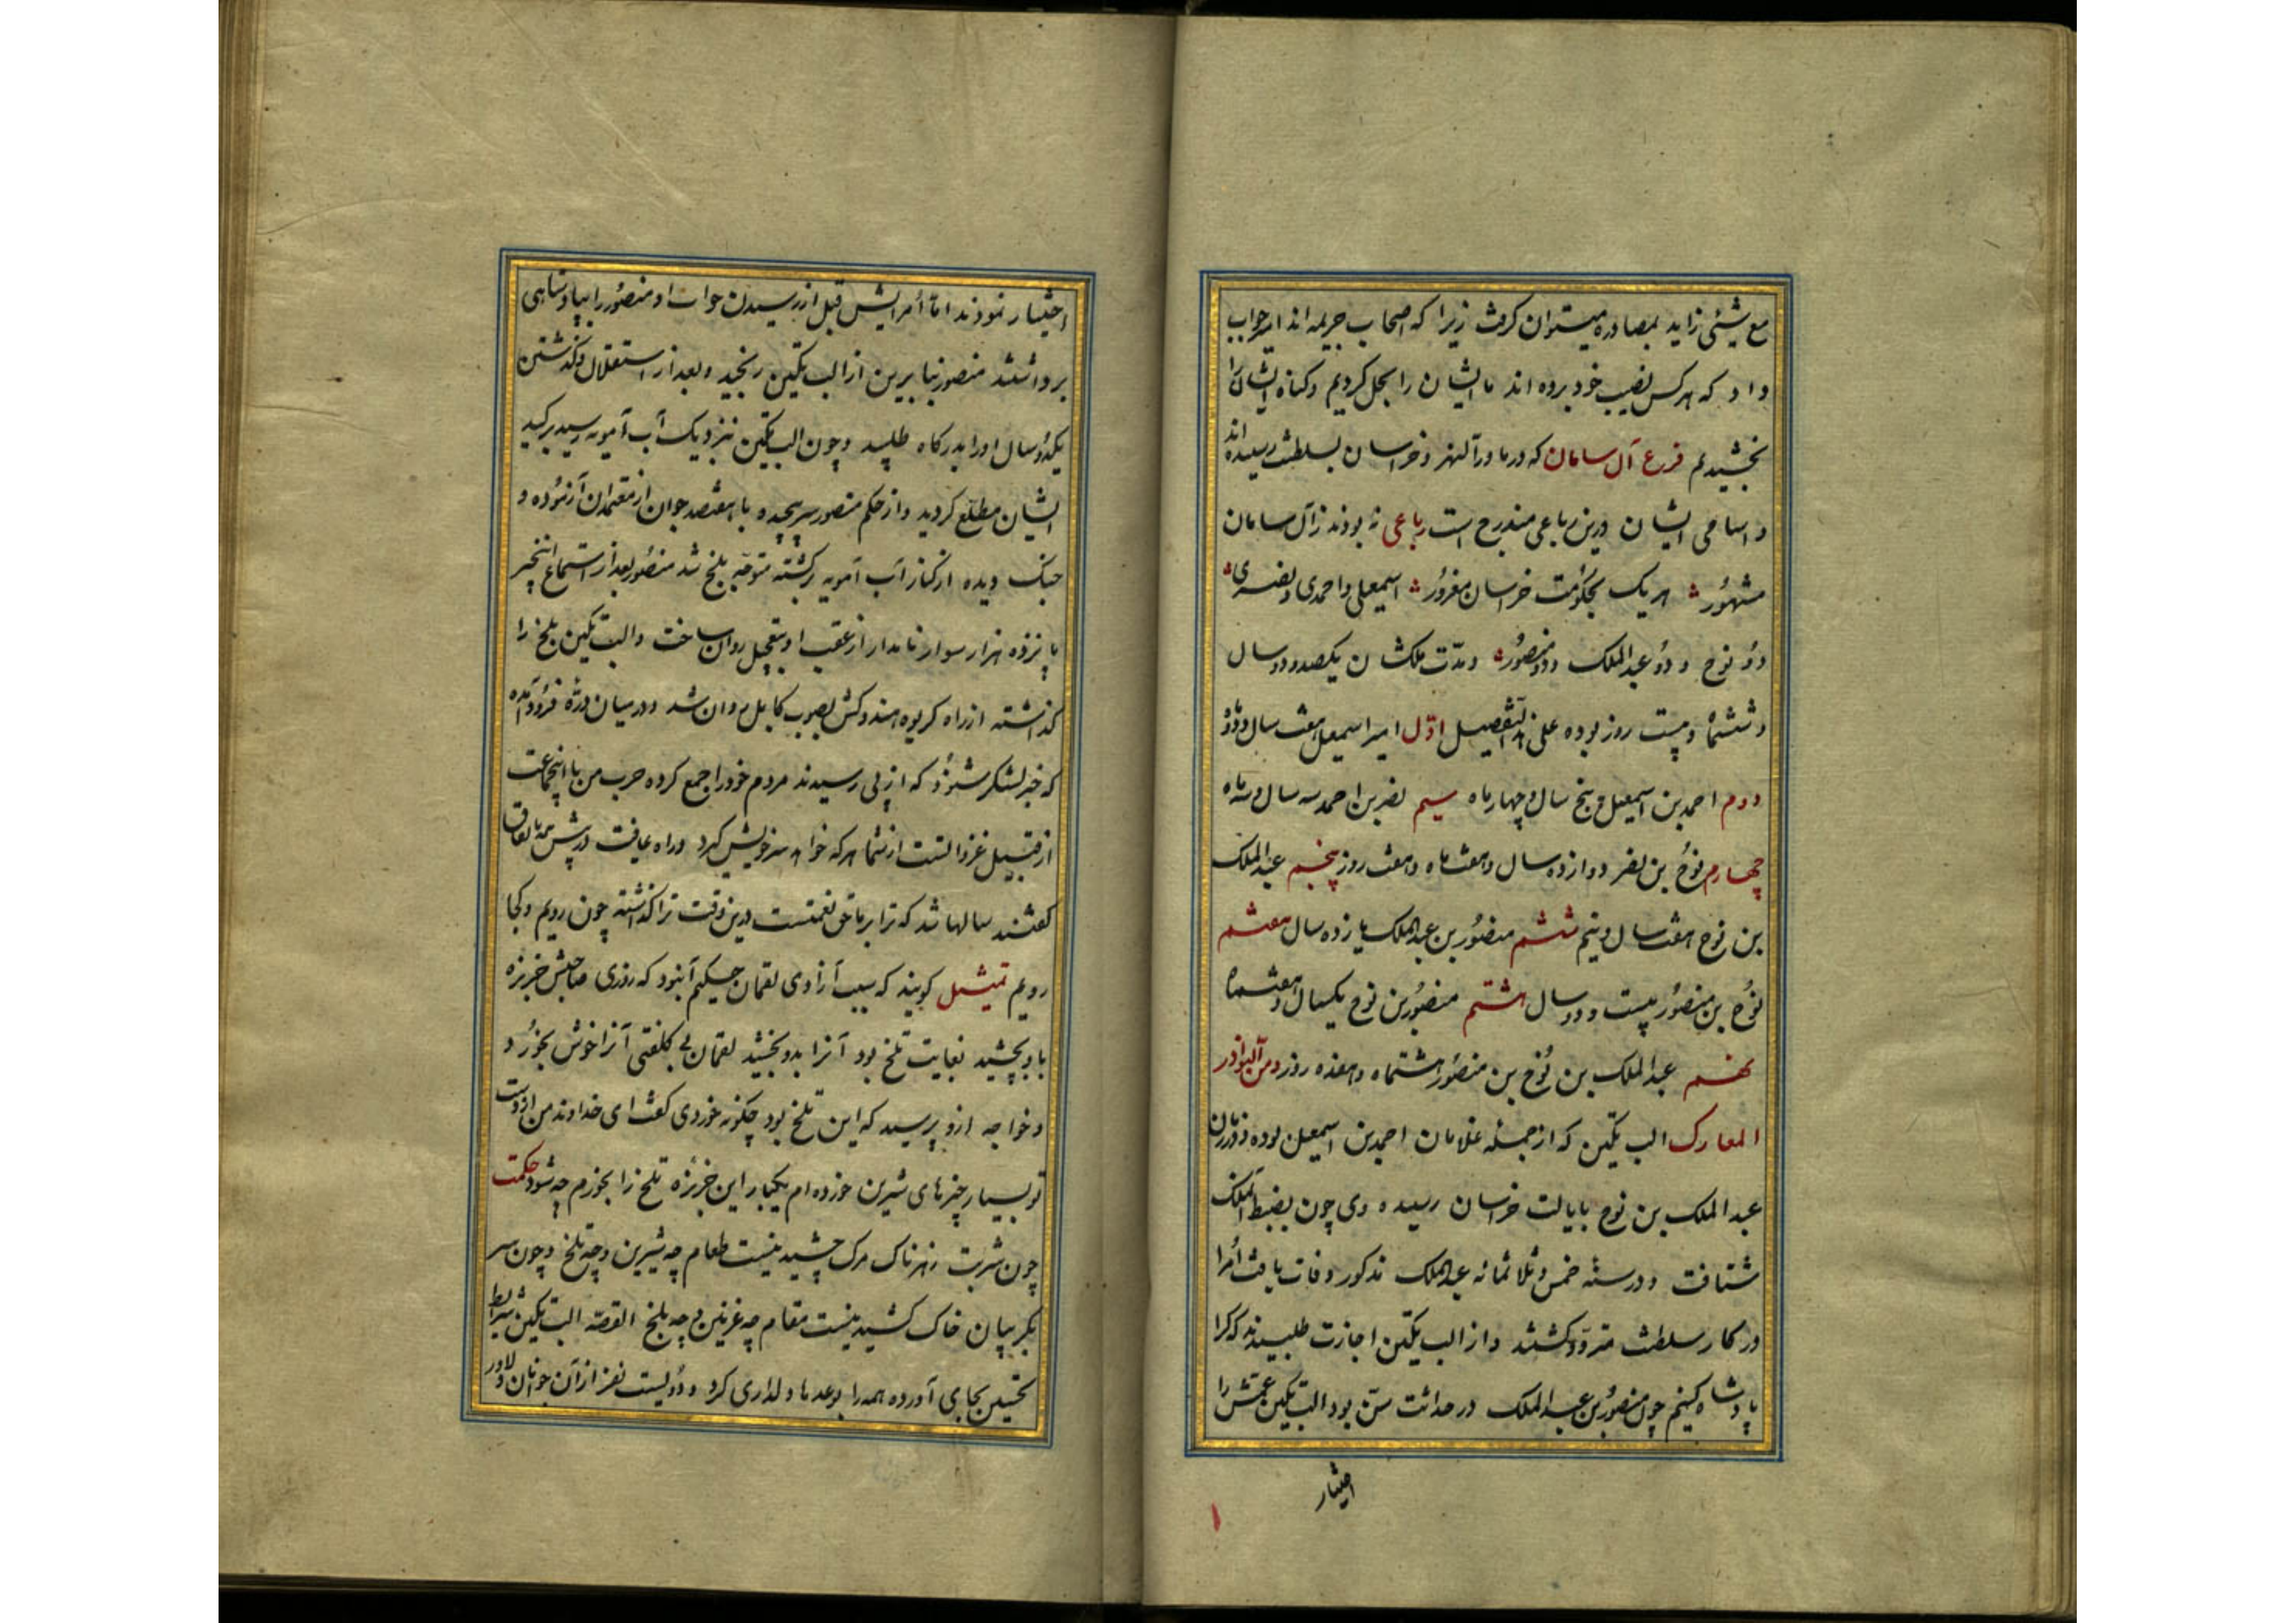 مع شیئی زاید بمصادره میتوان کرفت زیرا که اصحاب جریمه اند امیر جواب
داد که هرکس نصیب خود برده اند ما ایشان را بحل کردیم و کناه ایشان را
بخشیدیم فرع آل سامان که در ماورآلنهر و خراسان بسلطنت رسیده اند
و اسامی ایشان درین رباعی مندرج است رباعی نه بودند ز آل سامان
مشهور هر یک بحکومت خراسان مغرور اسمعیلی و احمدی و نصری
دو نوح و دو عبدالملک و دو منصور و مدّت ملکشان یکصد و دو سال
و ششماه و بیست روز بوده علی التفصیل اوّل امیر اسمعیل هفت سال و دو ماه
دوم احمد بن اسمعیل پنج سال و چهار ماه سیم نصر بن احمد سه سال و سه ماه
چهارم نوح بن نصر دوازده سال و هفت ماه و هفت روز پنجم عبدالملک
بن نوح هفت سال و نیم ششم منصور بن عبدالملک یازده سال هفتم
نوح بن منصور بیست و دو سال هشتم منصور بن نوح یکسال و هفتماه
نهم عبدالملک بن نوح بن منصور هشتماه و هفده روز و من النوادر
المعارک الب تکین که از جمله غلامان احمد بن اسمعیل بوده و در زمان
عبدالملک بن نوح بایالت خراسان رسیده وی چون بضبط الملک
شتافت و در سنه خمس و ثلاثمائه عبدالملک مذکور وفات یافت اُمرا
در کار سلطنت متردّد کشتند و از الب تکین اجازت طلبیدند که کرا
پادشاه کنیم چون منصور بن عبدالملک در حداثت سنّ بود الب تکین عمّش را
اختیار
اختیار نمودند امّا اُمرایش قبل از رسیدن جواب او منصور را بپادشاهی
برداشتند منصور بنابرین از الب تکین رنجید و بعد از استقلال و کذشتن
یک دو سال او را بدرکاه طلبید و چون الب تکین نزدیک آب آمویه رسید بر کید
ایشان مطلّع کردید و از حکم منصور سر پیچیده با هفتصد جوان از معتمدان آزموده و
جنک دیده از کنار آب آمویه برکشته متوجّه بلخ شد منصور بعد از استماع اینخبر
پانزده هزار سوار نامدار از عقب او بتعجیل روان ساخت و الب تکین بلخ را
کذاشته از راه کریوه هندوکش بصوب کابل روان شد و در میان درّه فرود آمده
که خبر لشکر شنود که از پی رسیدند مردم خود را جمع کرده حرب من با اینجماعت
از قبیل غزواتست از شما هر که خواهد سر خویش کیرد و راه عافیت در پیش همه باتفاق
کفتند سالها شد که ترا بر ما حق نعمتست درین وقت ترا کذاشته چون رویم و کجا
رویم تمثیل کویند که سبب آزادی لقمان حکیم آن بود که روزی صاحبش خربزه
باو بخشید بغایت تلخ بود آنرا بدو بخشید لقمان بی کلفتی آنرا خوش بخورد
و خواجه ازو پرسید که این تلخ بود چکونه خوردی کفت ای خداوند من از دست
تو بسیار چیزهای شیرین خورده ام یکبار این خربزه تلخ را بخورم چه شود حکمت
چون شربت زهرناک مرک چشیدنیست طعام چه شیرین و چه تلخ و چون سر
بکریبان خاک کشیدنیست مقام چه غزنین و چه بلخ القصّه الب تکین شرایط
تحسین بجای آورده همه را بوعدها دلداری کرد و دویست نفر از آن جوانان دلاور